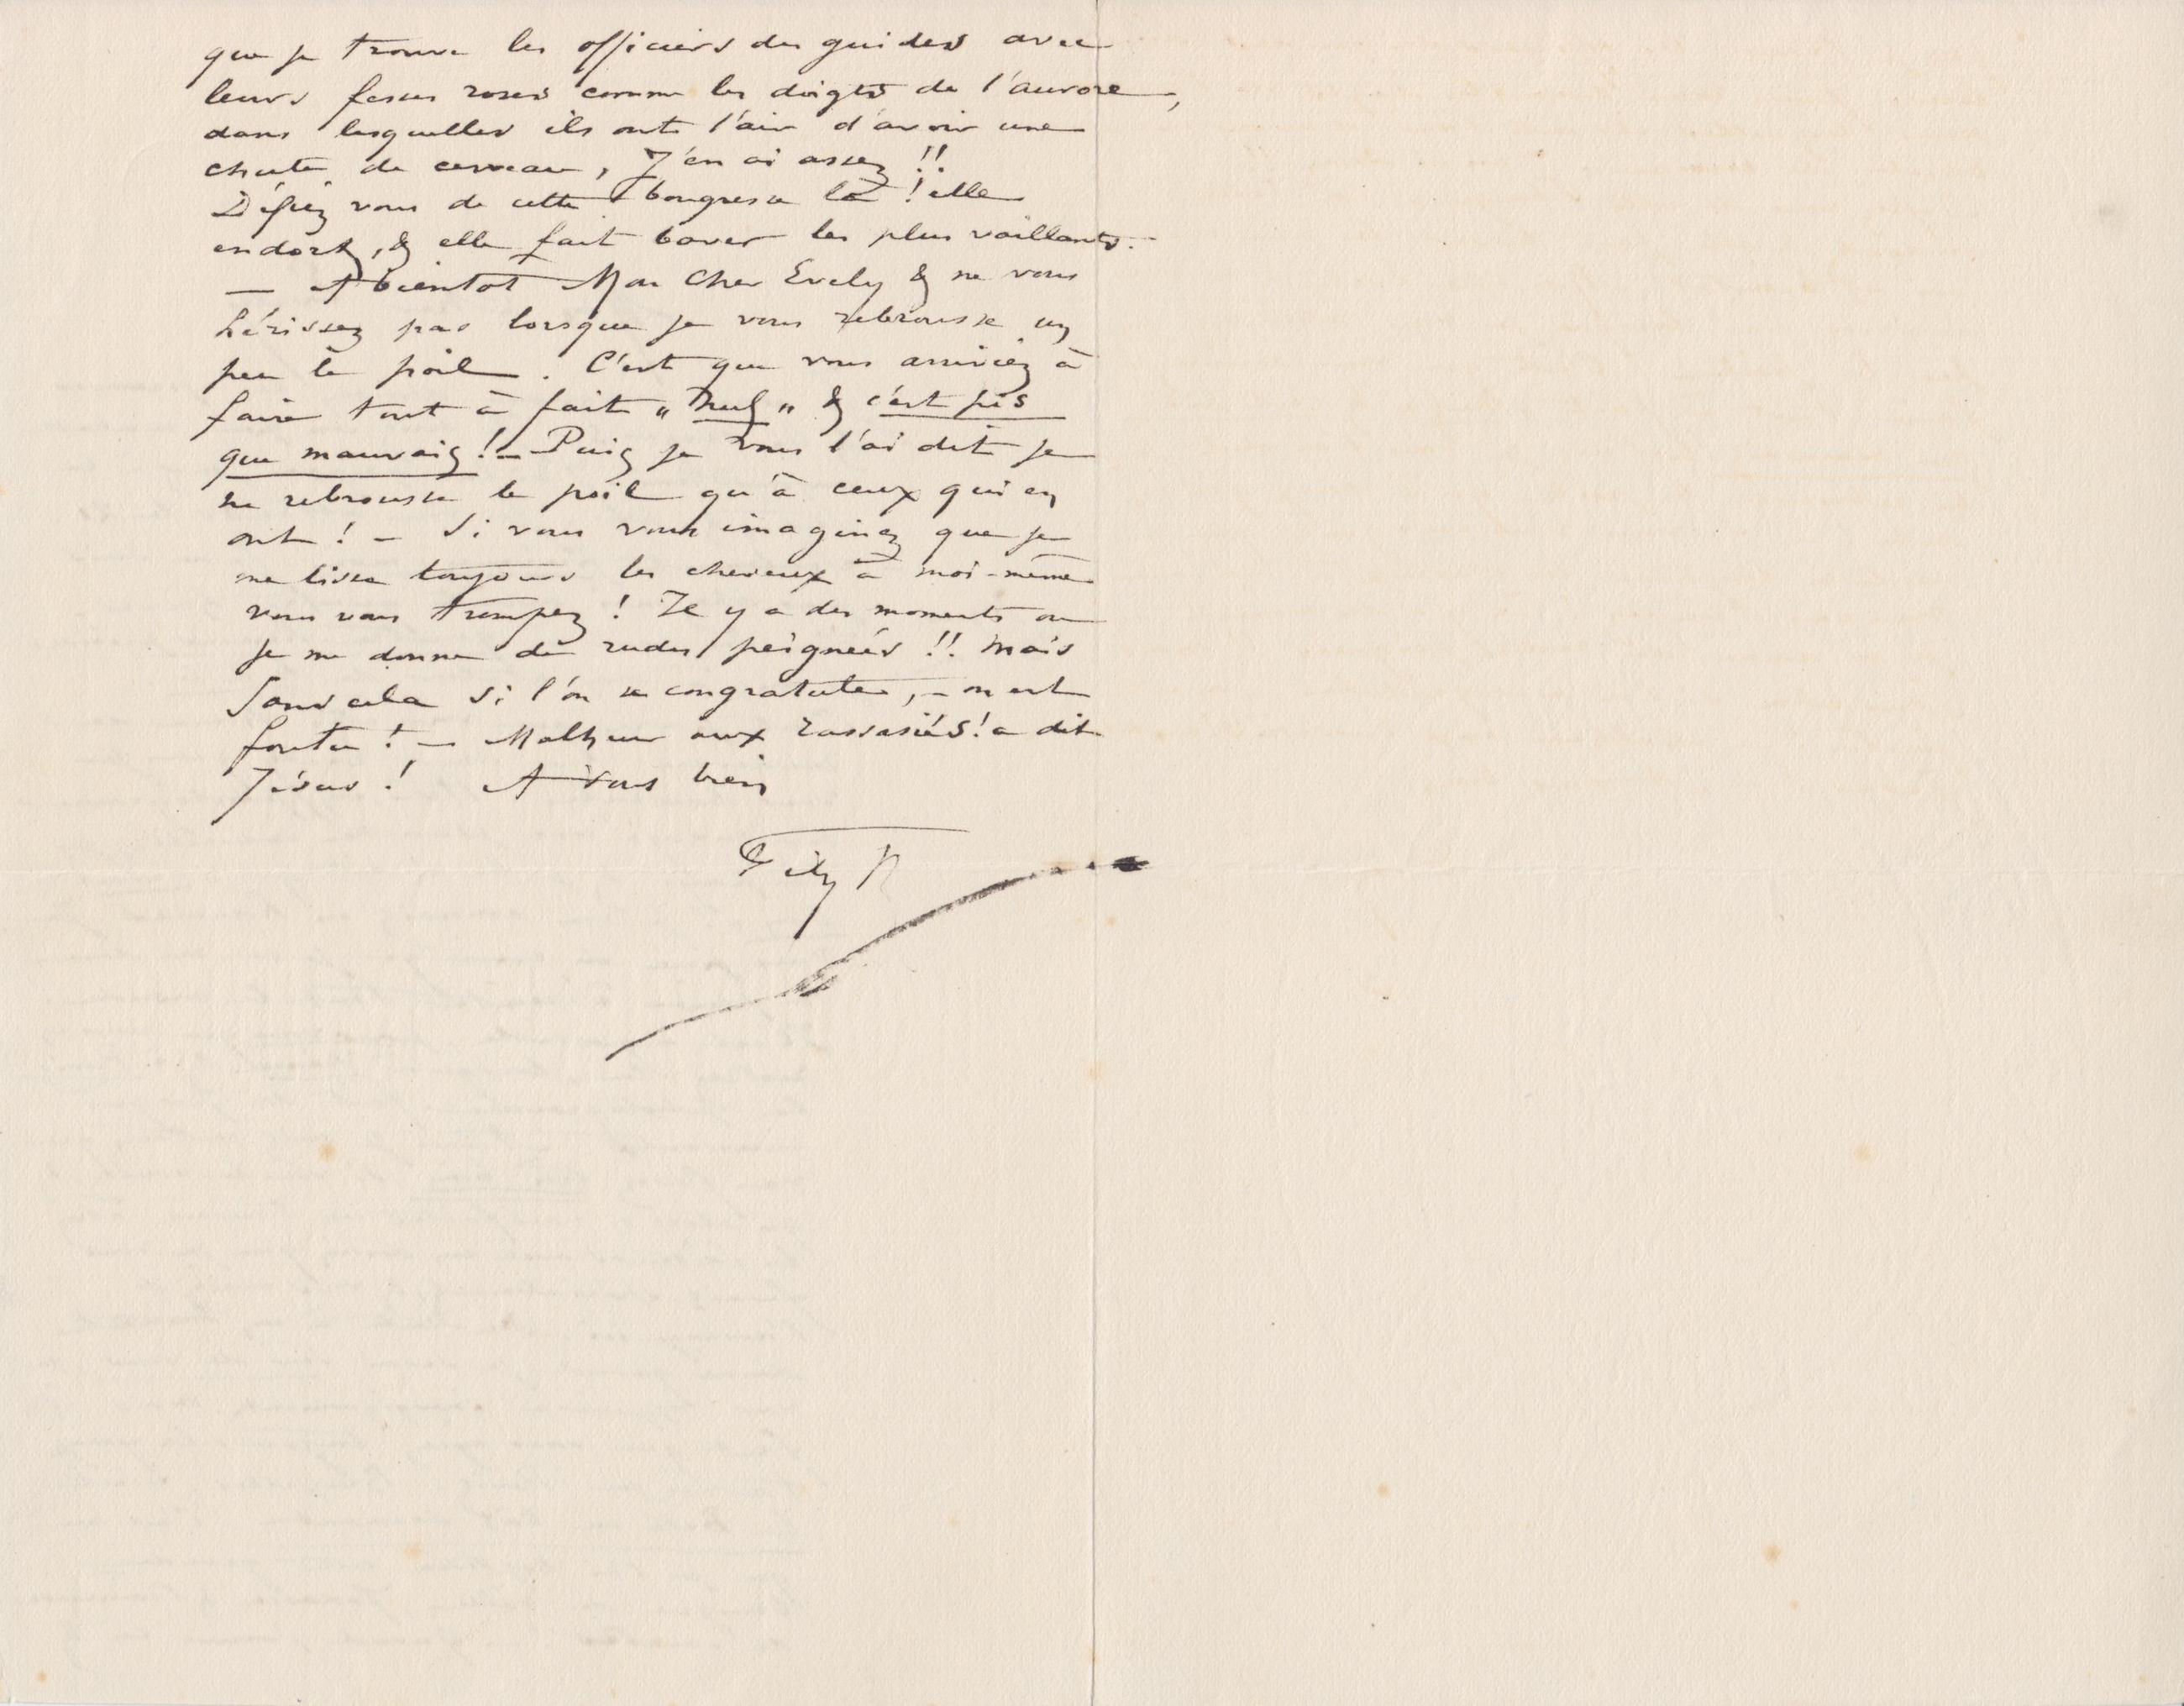 que je trouve les officiers des guides avec
leurs fesses roses comme les doigts de l'aurore,
dans lesquelles ils ont l'air d'avoir une
chute de cerveau, J'en ai assez !!
Défiez vous de cette bougresse là ! elle
endort, & elle fait baver les plus vaillants.
— A bientot Mon Cher Evely & ne vous
hérissez pas lorsque je vous rebrousse un
peu le poil. C'est que vous arriviez à
faire tout à fait „ „ & c'est pis
que mauvais ! – Puis je vous l'ai dit je
ne rebrousse le poil qu'à ceux qui en
ont ! – Si vous vous imaginez que je
me lisse toujours les cheveux à moi-même
vous vous trompez ! Il y a des moments ou
je me donne de rudes peignées !! mais
sans cela si l'on se congratule, – on est
foutu ! – Malheur aux rassasiés ! a dit
Jésus ! A vous bien
Fély R